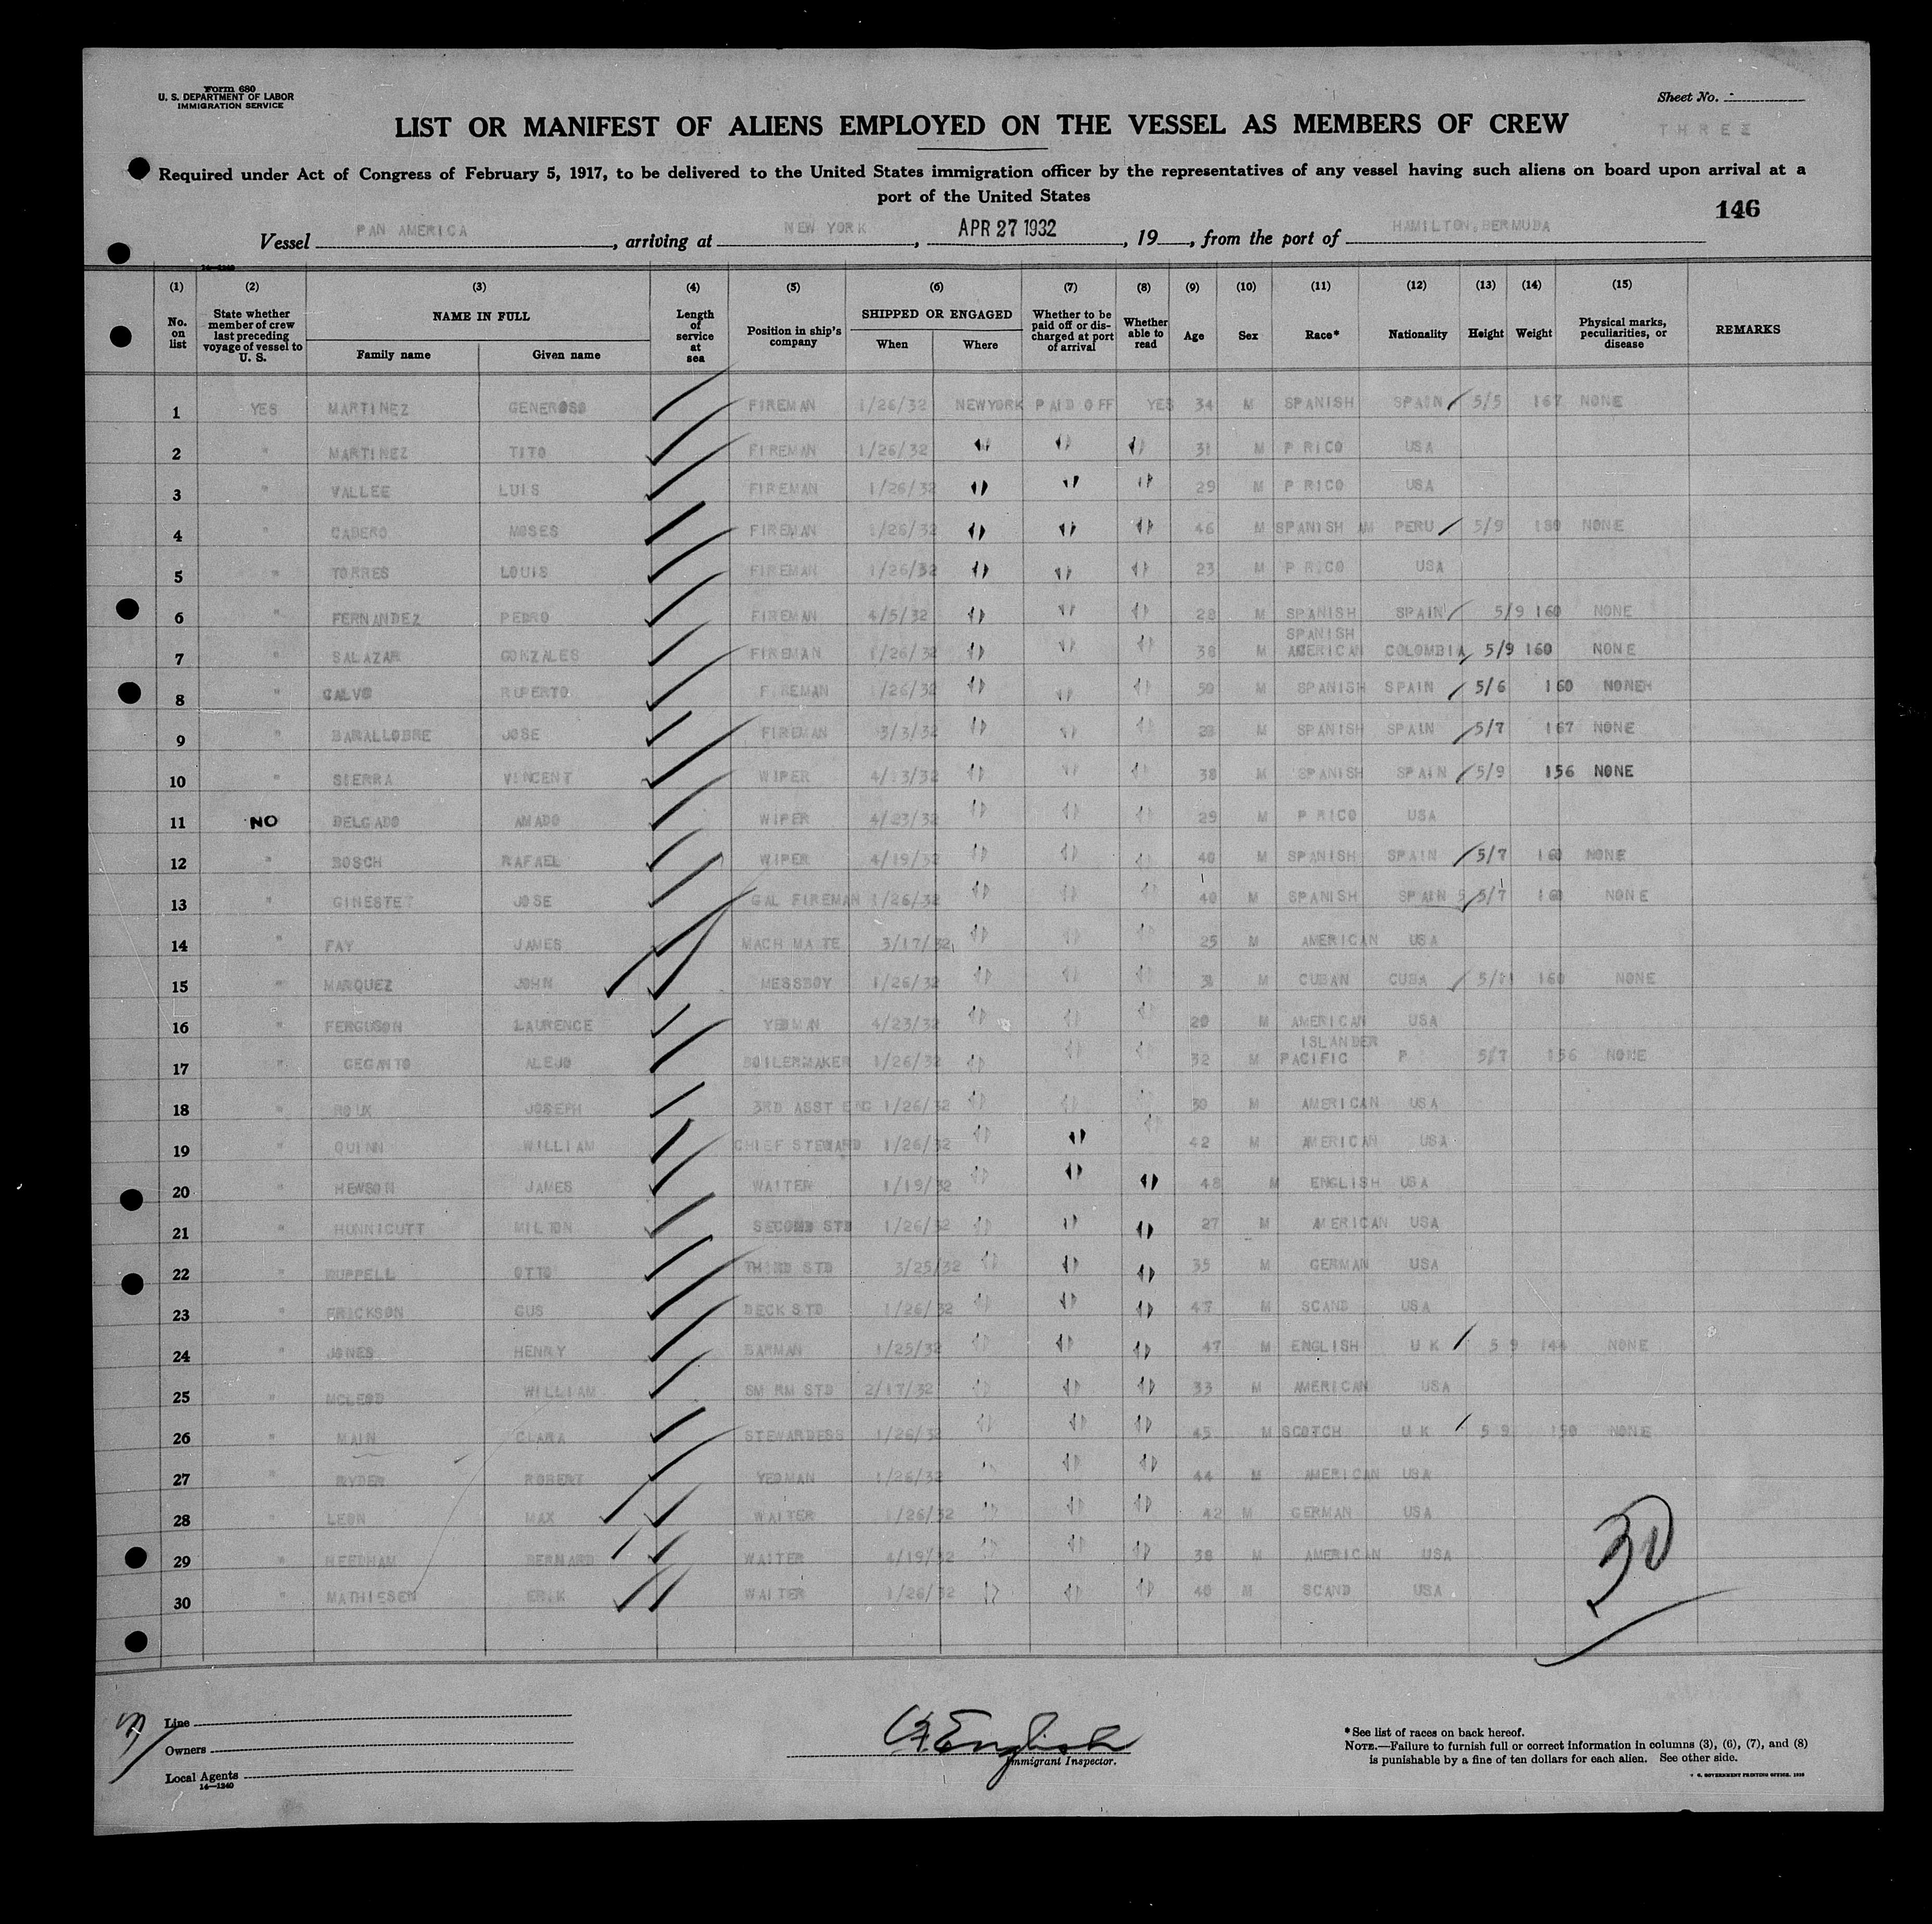 Form 680
U. S. DEPARTMENT OF LABOR
IMMIGRATION SERVICE
Sheet No.
THREE
LIST OR MANIFEST OF ALIENS EMPLOYED ON THE VESSEL AS MEMBERS OF CREW
Required under Act of Congress of February 5, 1917, to be delivered to the United States immigration officer by the representatives of any vessel having such aliens on board upon arrival at a
port of the United States
146
Vessel PAN AMERICA, arriving at NEW YORK, APR 27 1932, 19, from the port of HAMILTON, BERMUDA
14—1240
(1) (2) (3) (4) (5) (6) (7) (8) (9) (10) (11) (12) (13) (14) (15)
No. on list State whether member of crew last preceding voyage of vessel to U. S. NAME IN FULL Family name Given name Length of service at sea Position in ship's company SHIPPED OR ENGAGED When Where Whether to be paid off or discharged at port of arrival Whether able to read Age Sex Race* Nationality Height Weight Physical marks, peculiarities, or disease REMARKS
1 YES MARTINEZ GENEROSO FIREMAN 1/26/32 NEWYORK PAID OFF YES 34 M SPANISH SPAIN 5/5 167 NONE
2 " MARTINEZ TITO FIREMAN 1/26/32 " " " 31 M P RICO USA
3 " VALLEE LUIS FIREMAN 1/26/32 " " " 29 M P RICO USA
4 " CABERO MOSES FIREMAN 1/26/32 " " " 46 M SPANISH AM PERU 5/9 180 NONE
5 " TORRES LOUIS FIREMAN 1/26/32 " " " 23 M P RICO USA
6 " FERNANDEZ PEDRO FIREMAN 4/5/32 " " " 28 M SPANISH SPAIN 5/9 160 NONE
7 " SALAZAR GONZALES FIREMAN 1/26/32 " " " 38 M SPANISH AMERICAN COLOMBIA 5/9 160 NONE
8 " CALVO RUPERTO FIREMAN 1/26/32 " " " 50 M SPANISH SPAIN 5/6 160 NONE
9 " BARALLOBRE JOSE FIREMAN 3/3/32 " " " M SPANISH SPAIN 5/7 167 NONE
10 " SIERRA VINCENT WIPER 4/13/32 " " " 38 M SPANISH SPAIN 5/9 156 NONE
11 NO DELGADO AMADO WIPER 4/23/32 " " " 29 M P RICO USA
12 " BOSCH RAFAEL WIPER 4/19/32 " " " 40 M SPANISH SPAIN 5/7 160 NONE
13 " GINESTET JOSE GAL FIREMAN 1/26/32 " " " 40 M SPANISH SPAIN 5/7 160 NONE
14 " FAY JAMES MACH MATE 3/17/32 " " " 25 M AMERICAN USA
15 " MARQUEZ JOHN MESSBOY 1/26/32 " " " 31 M CUBAN CUBA 5/11 160 NONE
16 " FERGUSON LAURENCE YEOMAN 4/23/32 " " " 20 M AMERICAN USA
17 " GEGANTO ALEJO BOILERMAKER 1/26/32 " " " 32 M ISLANDER PACIFIC P 5/7 156 NONE
18 " ROUX JOSEPH 3RD ASST ENG 1/26/32 " " " 30 M AMERICAN USA
19 " QUINN WILLIAM CHIEF STEWARD 1/26/32 " " " 42 M AMERICAN USA
20 " HEWSON JAMES WAITER 1/19/32 " " " 48 M ENGLISH USA
21 " HUNNICUTT MILTON SECOND STD 1/26/32 " " " 27 M AMERICAN USA
22 " RUPPELL OTTO THIRD STD 3/25/32 " " " 35 M GERMAN USA
23 " ERICKSON GUS DECK STD 1/26/32 " " " 47 M SCAND USA
24 " JONES HENRY BARMAN 1/25/32 " " " 47 M ENGLISH U K 5 9 144 NONE
25 " MCLEOD WILLIAM SM RM STD 2/17/32 " " " 33 M AMERICAN USA
26 " MAIN CLARA STEWARDESS 1/26/32 " " " 45 M SCOTCH U K 5 9 150 NONE
27 " RYDER ROBERT YEOMAN 1/26/32 " " " 44 M AMERICAN USA
28 " LEON MAX WAITER 1/26/32 " " " 42 M GERMAN USA
29 " NEEDHAM BERNARD WAITER 4/19/32 " " " 38 M AMERICAN USA
30 " MATHIESEN ERIK WAITER 1/26/32 " " " 40 M SCAND USA
30
Line
Owners
Local Agents
14—1240
English
Immigrant Inspector.
*See list of races on back hereof.
NOTE.—Failure to furnish full or correct information in columns (3), (6), (7), and (8)
is punishable by a fine of ten dollars for each alien. See other side.